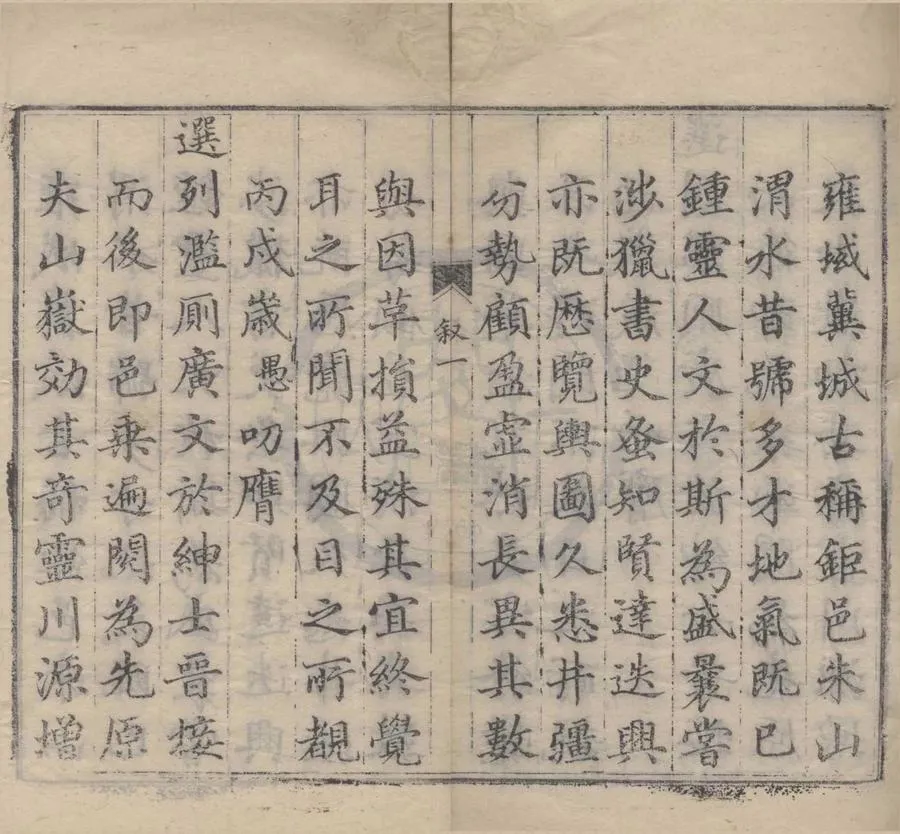 雍域冀城古稱鉅邑朱山
渭水昔號多才地氣既已
鍾靈人文於斯為盛曩嘗
涉獵書史蚤知賢達迭興
亦既歷覽輿圖久悉井疆
分勢顧盈虛消長異其數
敘一
與因革損益殊其宜終覺
耳之所聞不及目之所覩
丙戌歲愚叨膺
選列濫厠廣文於紳士晉接
而後即邑乗遍閱為先原
夫山嶽効其奇靈川源增